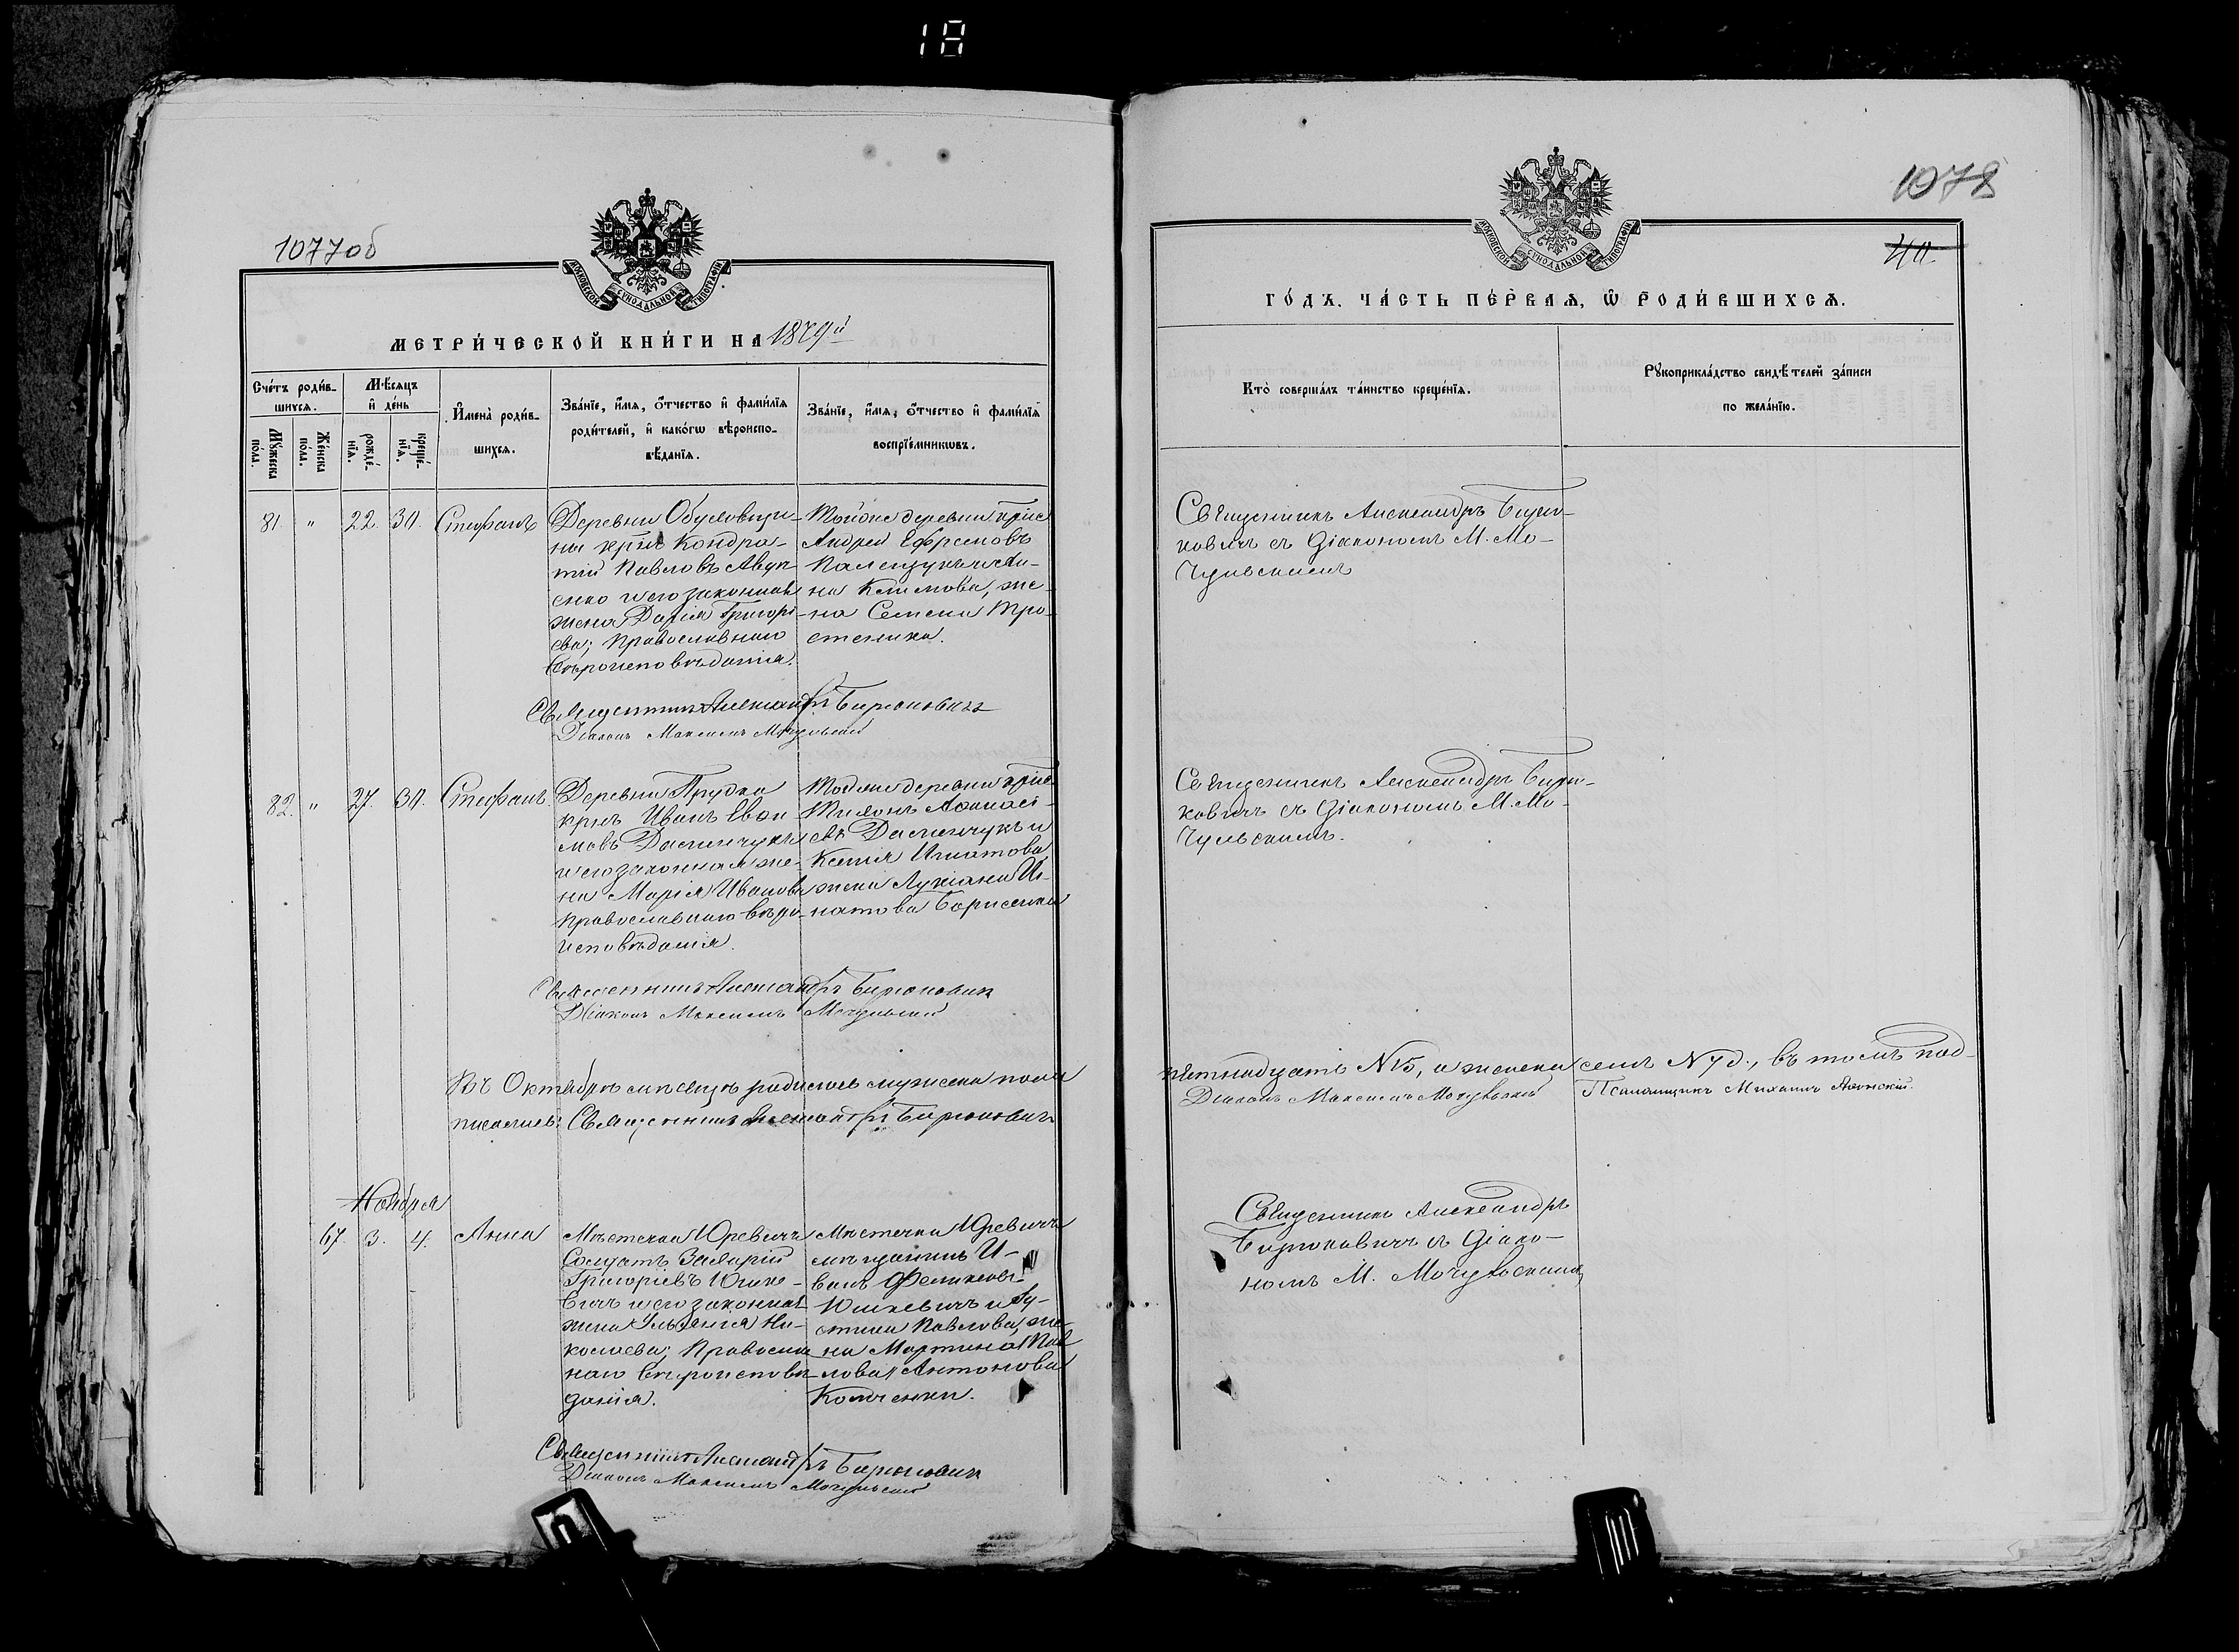 18
1077об
МОСКОВСКОЙ СУНОДАЛЬНОЙ ТИПОГРАФІИ
МЕТРИ́ЧЕСКОЙ КНИ́ГИ НА 1879й
Сче́тъ роди́в-
шихся.
Мѣ́сяцъ
и҆ де́нь
И҆мена̀ роди́в-
шихся.
Зва́нїе, и҆́мя, ѻ҆́тчество и҆ фами́лїя
роди́телей, и҆ како́гѡ вѣ́роиспо-
вѣ́данїя.
Зва́нїе, и҆́мя, ѻ҆́тчество и҆ фами́лїя
воспрїе́мникѡвъ.
Мꙋ́жеска
по́ла.
Же́нска
по́ла.
рожде́-
нїя.
креще́-
нїя.
81. " 22. 30. Стефанъ
Деревни
ни крнъ Кондра-
тій Павловъ Авдѣ-
енко и его законная
жена Дарія Григорі-
ева; православнаго
вѣроисповѣданія.
Тойже деревни крне
Андрей Ефремовъ
на Климова, же-
на Семена Тро-
стеника.
Священникъ Александръ Бирюковичъ
Діаконъ Максимъ Мочульскій
82. " 27. 30. Стефанъ.
Деревни Прудка
крнъ Иванъ Евѳи-
мовъ Дасичукъ
и его законная же-
на Марія Иванова
православнаго вѣро-
исповѣданія.
Тойже деревни крне
Аѳанасі-
евъ и
Ксенія Игнатова,
жена Лукіана Иг-
натова Борисенка
Священникъ Александръ Бирюковичъ
Діаконъ Максимъ Мочульскій
Въ Октябрѣ мѣсяцѣ родилось мужеска пола
писались: Священникъ Александръ Бирюковичъ
Ноября
67. 3. 4. Анна
Мѣстечка Юревичъ
Солдатъ Захарій
Григоріевъ Юшке-
вичъ и его законная
жена Ульянія Ни-
колаева; Православ
наго вѣроисповѣ-
данія.
Мѣстечка Юревичъ
мѣщанинъ И-
ванъ Феликсовъ
Юшкевичъ и Іу-
стина Павлова, же-
на Мартина Пав
лова Антонова
Священникъ Александръ Бирюковичъ
Діаконъ Максимъ Мочульскій
1078
40
МОСКОВСКОЙ СУНОДАЛЬНОЙ ТИПОГРАФІИ
ГО́ДЪ, ЧА́СТЬ ПЕ́РВАЯ, Ѡ҆ РОДИ́ВШИХСЯ.
Кто̀ соверша́лъ та́инство креще́нїя.
Рꙋкоприкла́дство свидѣ́телей за́писи
по жела́нїю.
Священникъ Александръ Бирю-
ковичъ съ Діакономъ М. Мо-
чульскимъ
Священникъ Александръ Бирю-
ковичъ съ Діакономъ М. Мо-
чульскимъ.
пятнадцать N15, а женска семь N7й., въ томъ под-
Діаконъ Максимъ Мочульскій
Псаломщикъ Михаилъ
Священникъ Александръ
Бирюковичъ съ Діако-
номъ М. Мочульскимъ